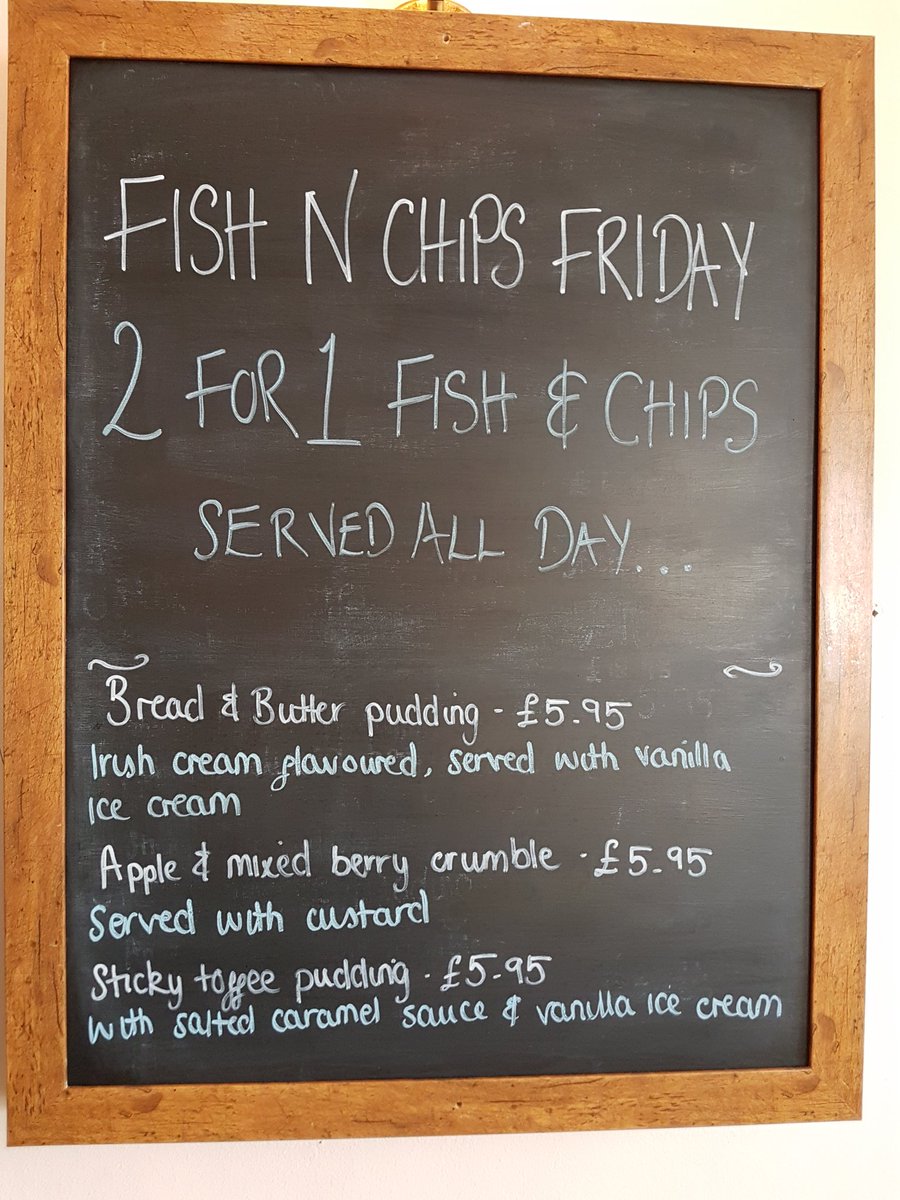 FISH N CHIPS FRIDAY
2 FOR 1 FISH & CHIPS
SERVED ALL DAY...
Bread & Butter pudding - £5.95
Irish cream flavoured, served with vanilla
ice cream
Apple & mixed berry crumble - £5.95
Served with custard
Sticky toffee pudding - £5.95
with salted caramel sauce & vanilla ice cream